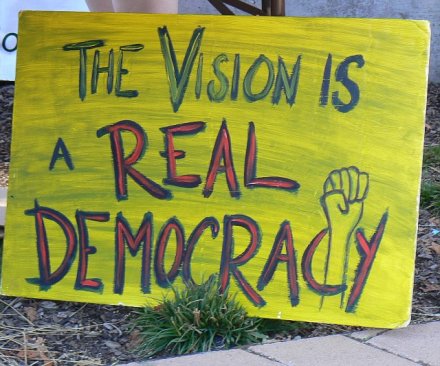 The Vision is
a Real
Democracy